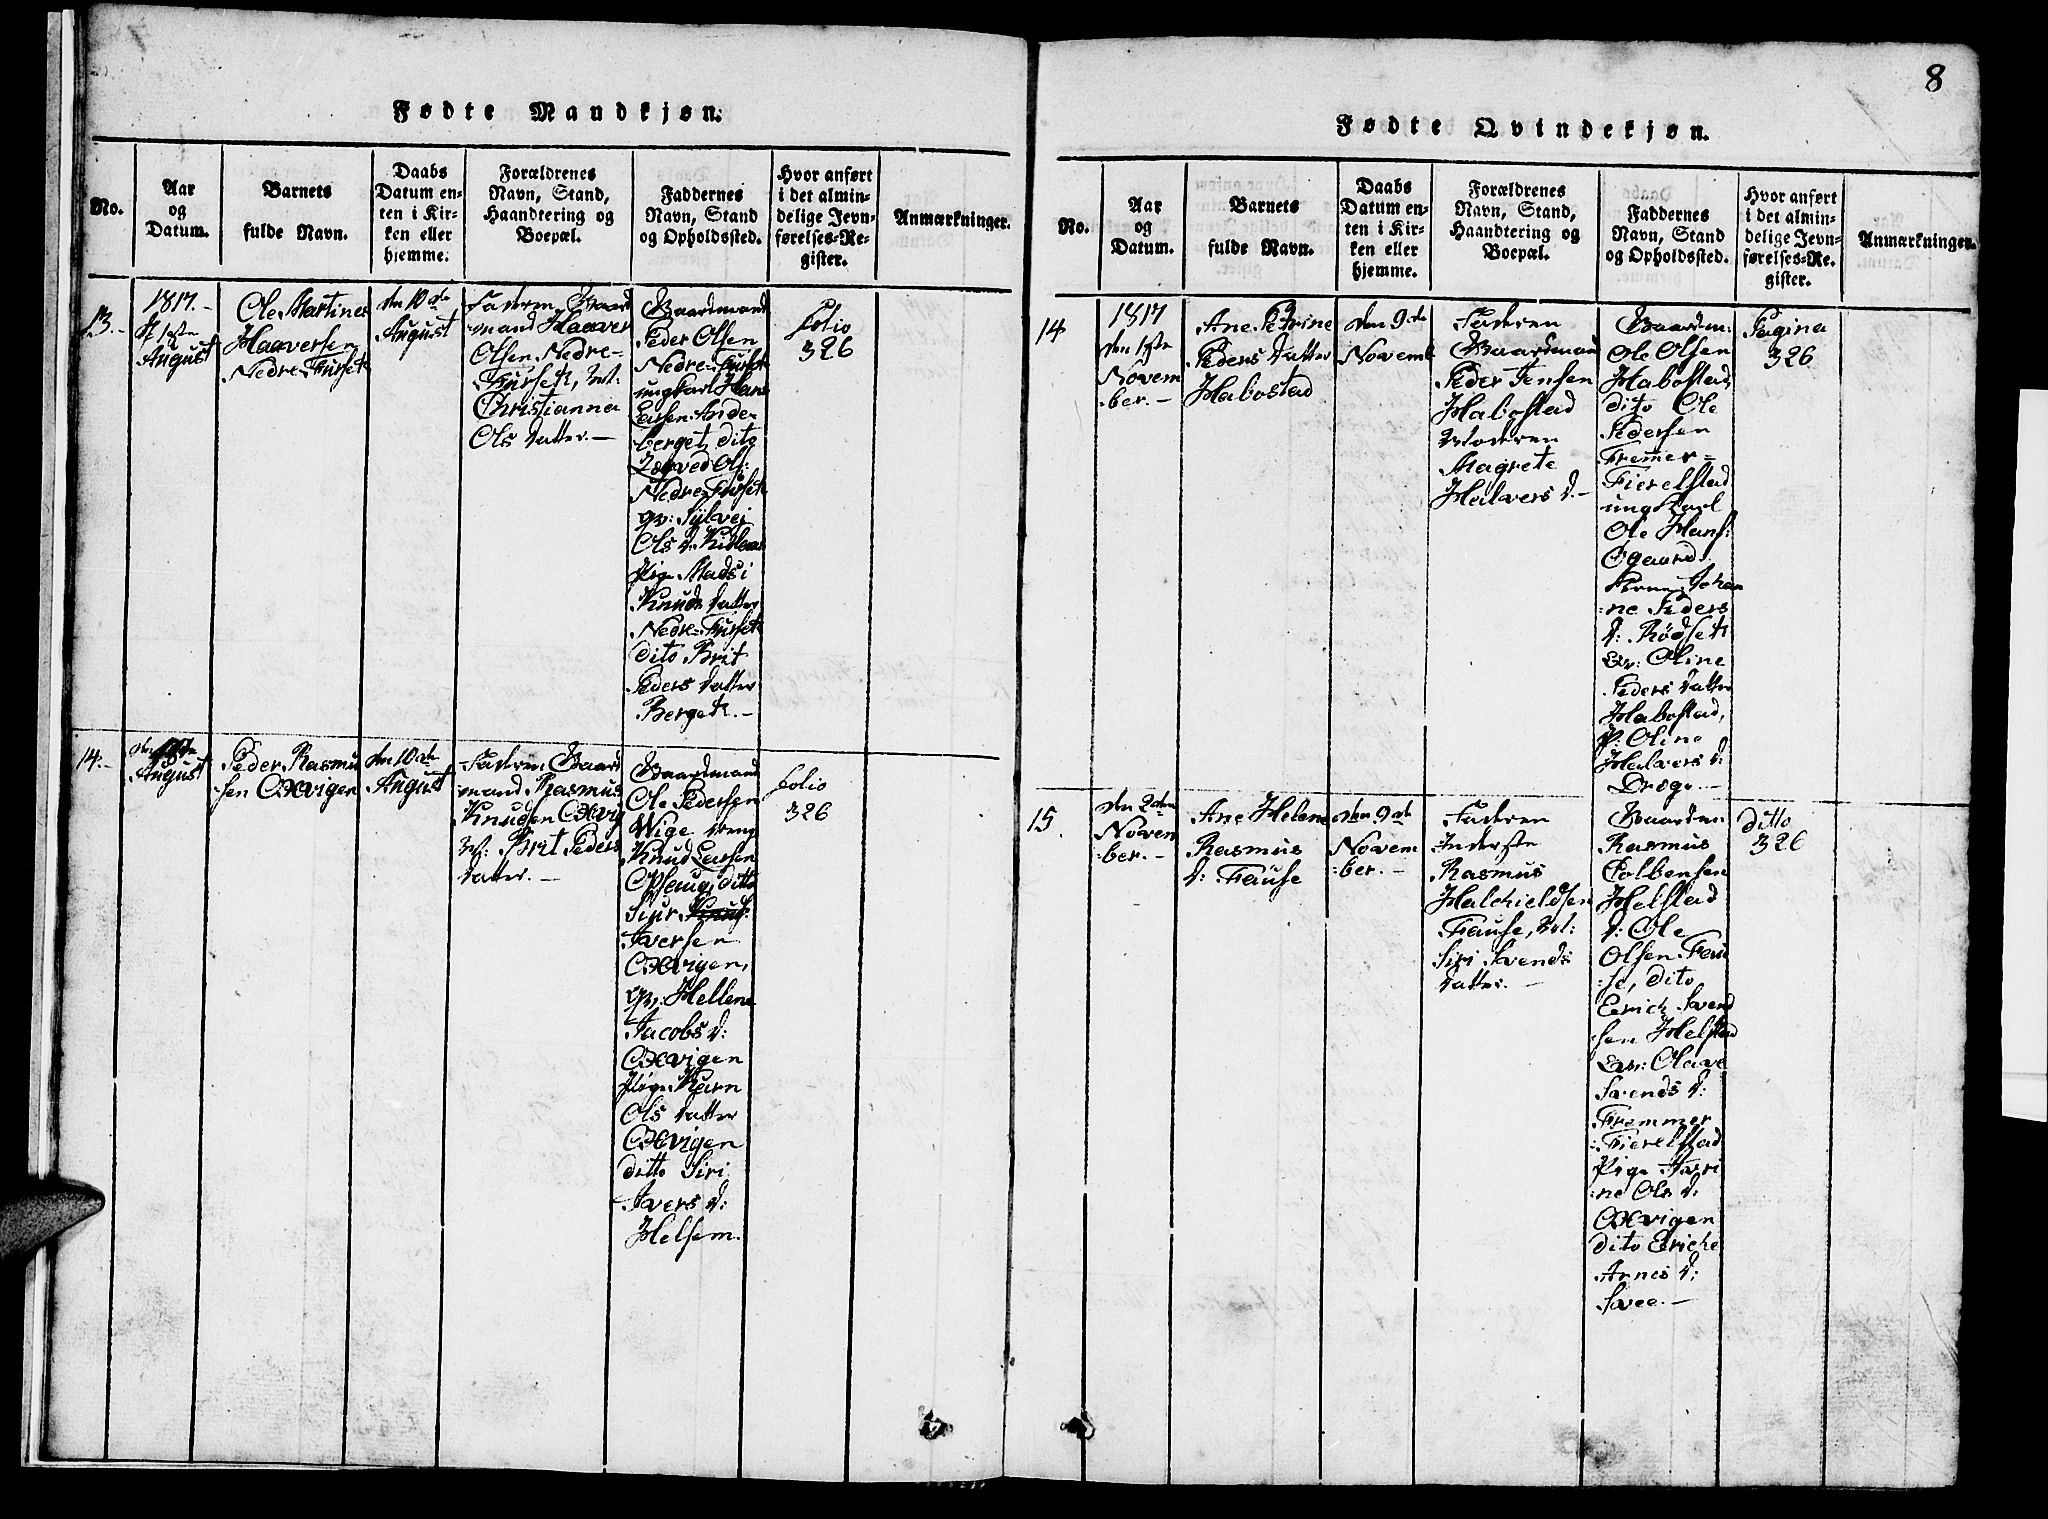 8
Fødte Mandkjøn.
No.
Aar
og
Datum.
Barnets
fulde Navn.
Daabs
Datum en-
ten i Kir-
ken eller
hjemme.
Forældrenes
Navn, Stand,
Haandtering og
Boepæl.
Faddernes
Navn, Stand
og Opholdssted.
Hvor anført
i det almin-
delige Jevn-
førelses-Re-
gister.
Anmærkninger.
13.-
1817.-
1ste
August
Ole Martines
Haaversen
Nedre-Furseth
den 10de
August
Faderen Gaard
mand Haaver
Olsen Nedre-
Furseth, M:
Christianna
Ols Datter.-
Gaardmand
Peder Olsen
Nedre-Furseth
ungkarl Hans
Larsen Ande-
berget, dito
Ols:
Nedre-Furseth
gv: Sylvej
Ols d:
Pige Madsi
Knuds Datter
Nedre-Furseth
dito Brit
Peders Datter
Bergeth.-
Folio
326
14.-
August
Peder Rasmu
sen Oxvigen
den 10de
August
Faderen Gaard
mand Rasmus
Knudsen Oxvig
M: Brit Peders
Datter.-
Gaardmand
Ole Pedersen
Wige dreng
Knud Larsen
Opsaug, ditto
Siur Knuds:
Iversen
Oxvigen,
gv: Hellene
Jacobs d:
Oxvigen
Pige Karn
Ols Datter
Oxvigen
ditto Siri
Ivers d:
Helsem.
Folio
326
Fødte Qvindekjøn.
No.
Aar
og
Datum.
Barnets
fulde Navn.
Daabs
Datum en-
ten i Kir-
ken eller
hjemme.
Forældrenes
Navn, Stand,
Haandtering og
Boepæl.
Faddernes
Navn, Stand
og Opholdssted.
Hvor anført
i det almin-
delige Jevn-
førelses-Re-
gister.
Anmærkninger.
14
1817
den 1ste
Novem
:ber.-
Ane Petrine
Peders Datter
Habostad
den 9de
Novemb
Faderen
Gaardmand
Peder Jensen
Habostad
Moderen
Magrete
Halvers d.-
Gaardm:
Ole Olsen
Habostad,
dito Ole
Pedersen
Fremer=
Fierelstad
ungkarl
Ole Hans:
Ogaard.
Kone Johan
:ne Peders
d: Rødseth
Gv: Oline
Peders Datter
Habostad,
P: Oline
Halvers d:
Drøge.-
Pagina
326
15.
den 2den
Novem
:ber.-
Ane Helene
Rasmus
d: Fause
den 9de
Novem
:ber.-
Faderen
Inderste
Rasmus
Halchieldsen
Fause, M:
Siri Svends
Datter.-
Gaardm:
Rasmus
Colbensen
Helstad
d: Ole
Olsen Fau
:se, dito
Erich Svend
sen Helstad
Gv: Olave
Svends d:
Fremmer
:Fierelstad
Pige Karri
:ne Ols d:
Oxvigen
dito Eriche
Arnes d:
Svee.-
Ditto
326